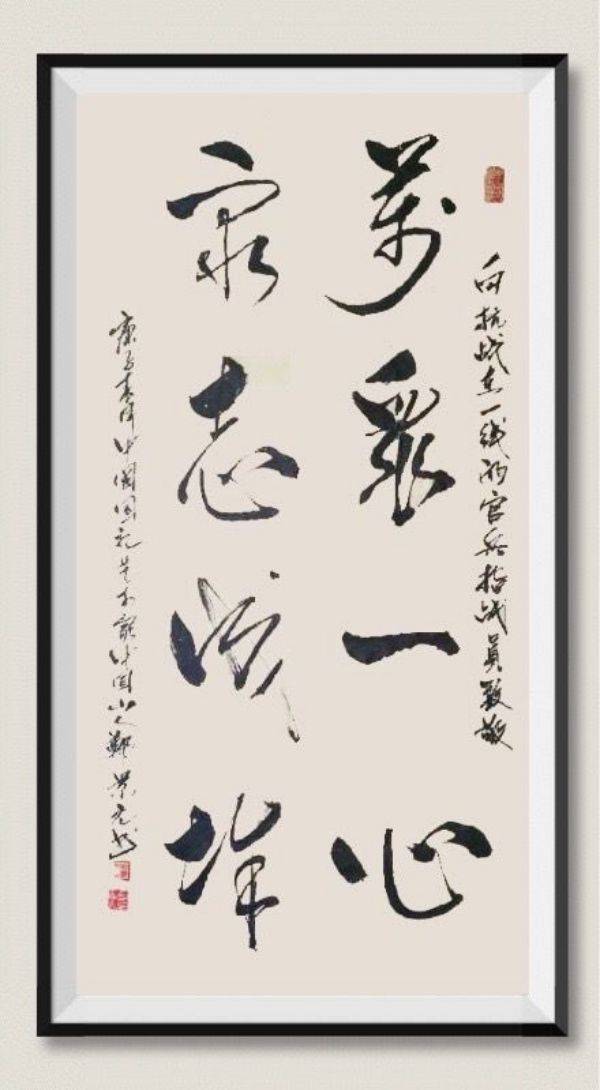 向抗战在一线的官兵指战员致敬
萬衆一心
衆志成城
庚子春月中國国礼艺术家中国山人鄭景元书